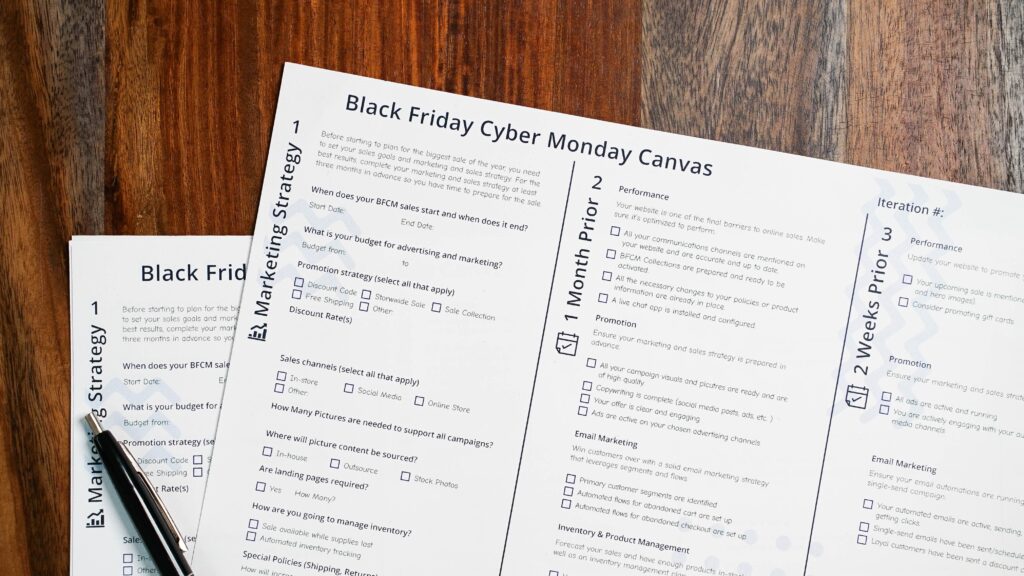 Black Friday Cyber Monday Canvas
Marketing Strategy 1
Before starting to plan for the biggest sale of the year, you need
to set your sales goals and marketing and sales strategy. For the
best results, complete your marketing and sales strategy at least
three months in advance so you have time to prepare for the sale.
When does your BFCM sales start and when does it end?
Start Date:
End Date:
What is your budget for advertising and marketing?
Budget from:
to
Promotion strategy (select all that apply)
Discount Code
Storewide Sale
Sale Collection
Free Shipping
Other:
Discount Rate(s)
Sales channels (select all that apply)
In-store
Social Media
Online Store
Other:
How Many Pictures are needed to support all campaigns?
Where will picture content be sourced?
In-house
Outsource
Stock Photos
Are landing pages required?
Yes
How Many?
How are you going to manage inventory?
Sale available while supplies last
Automated inventory tracking
Special Policies (Shipping, Return
How will incre
1 Month Prior 2
Performance
Your website is one of the final barriers to online sales. Make
sure it's optimized to perform.
All your communications channels are mentioned on
your website and are accurate and up to date.
BFCM Collections are prepared and ready to be
activated.
All the necessary changes to your policies or product
information are already in place.
A live chat app is installed and configured.
Promotion
Ensure your marketing and sales strategy is prepared in
advance.
All your campaign visuals and picutres are ready and are
of high quality
Copywriting is complete (social media posts, ads, etc.)
Your offer is clear and engaging
Ads are active on your chosen advertising channels
Email Marketing
Win customers over with a solid email marketing strategy
that leverages segments and flows
Primary customer segments are identified
Automated flows for abandoned cart are set up
Automated flows for abandoned checkout are set up
Inventory & Product Management
Forecast your sales and have enough products in-st
well as an inventory management plan
Iteration #:
2 Weeks Prior 3
Performance
Update your website to promote
Your upcoming sale is mention
and hero images)
Consider promoting gift cards
Promotion
Ensure your marketing and sales strat
All ads are active and running
You are actively engaging with your au
media channels
Email Marketing
Ensure your email automations are running
single-send campaign.
Your automated emails are active, sending,
getting clicks
Single-send emails have been sent/schedu
Loyal customers have been sent a discount c
Black Frid
Marketing Strategy 1
Before starting to plan for the bigg
to set your sales goals and marke
best results, complete your market
three months in advance so you
When does your BFCM sale
Start Date:
E
What is your budget for a
Budget from:
Promotion strategy (se
Discount Code
S
Free Shipping
nt Rate(s)
Sales
In-
Other: